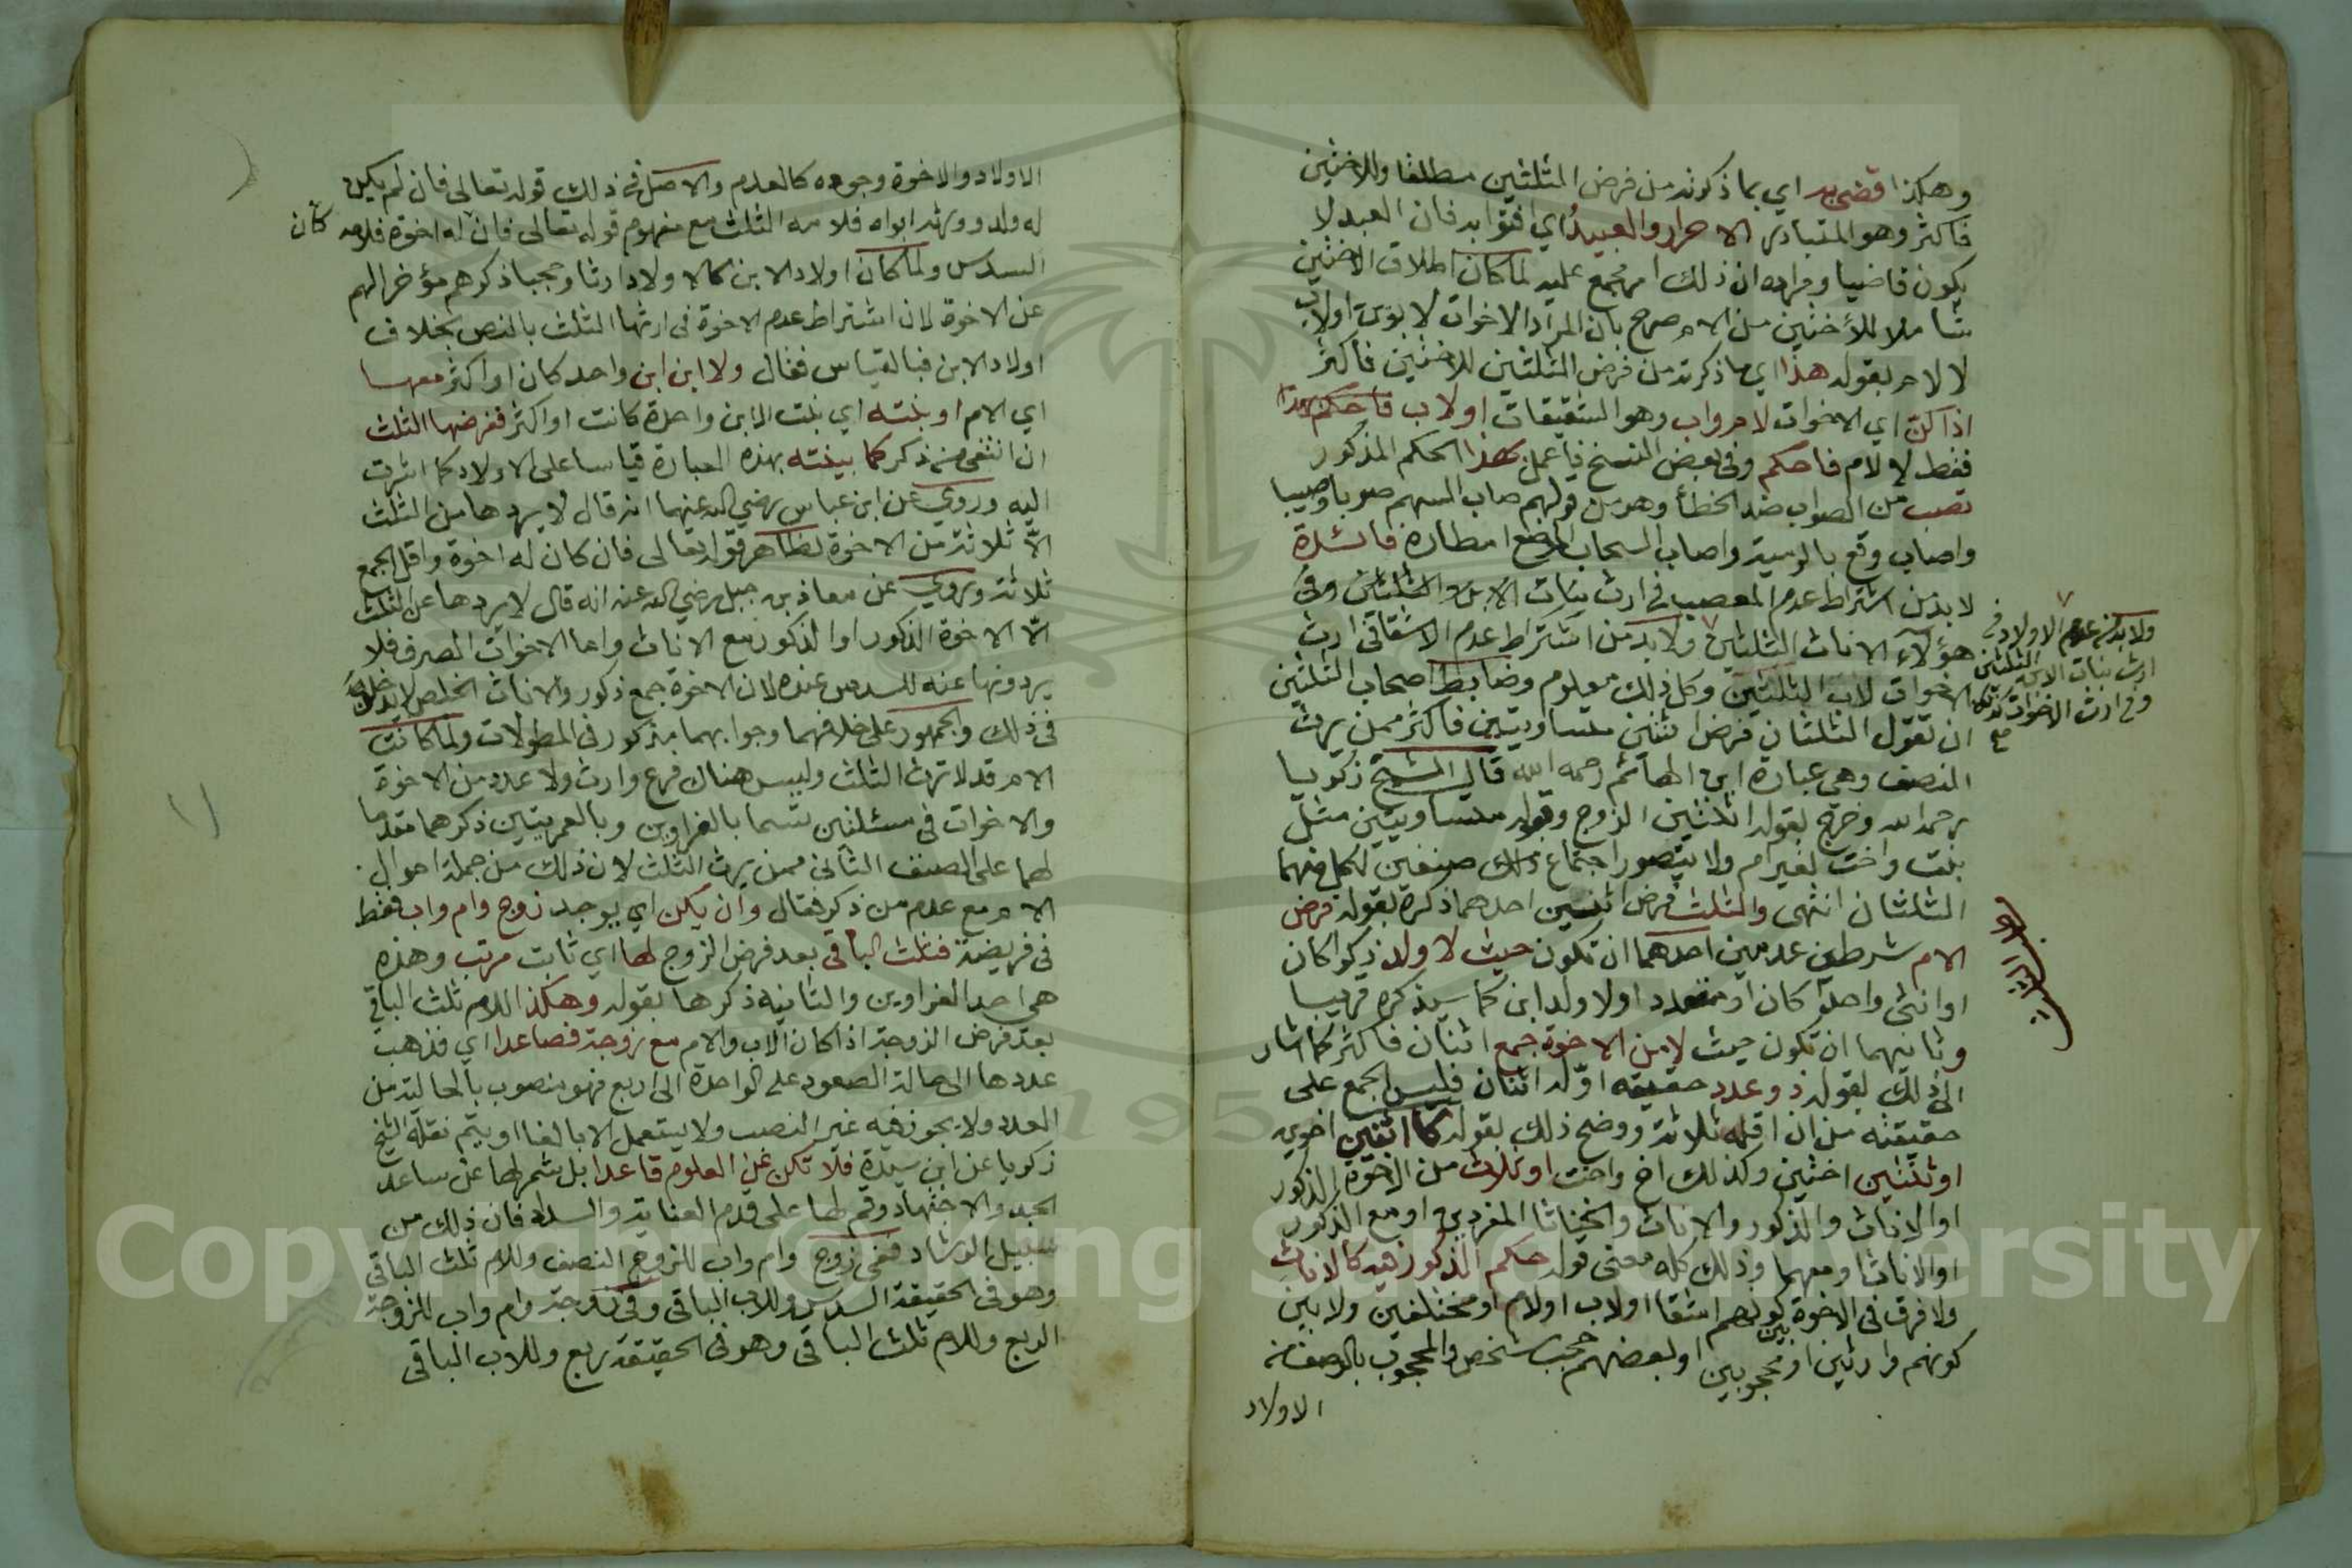 وهكذا قضى به اي بما ذكرته من فرض الثلثين مطلقا وللاختين
فاكثر وهو المتبادر الاحرار والعبيد اي افتوا به فان العبد لا
يكون قاضيا ومراده ان ذلك امر مجمع عليه لما كان اطلاق الاختين
شاملا للأختين من الام صرح بان المراد الاخوات لابوين او لاب
لا لام بقوله هذا اي ما ذكرته من فرض الثلثين للاختين فاكثر
اذا كنّ اي الاخوات لام واب وهو الشقيقات او لاب فاحكم بهذا
فقط لا لام فاحكم وفي بعض النسخ فاعمل بهذا الحكم المذكور
تصب من الصواب ضد الخطأ وهو من قولهم صاب السهم صوبا وصيبا
واصاب وقع بالرمية واصاب السحاب الموضع امطاره فائدة
لا بد من اشتراط عدم المعصب في ارث بنات الابن الثلثين وفي
هؤلاء الاناث الثلثين ولا بد من اشتراط عدم الاشقاء في ارث
الاخوات لاب الثلثين وكل ذلك معلوم وضابط اصحاب الثلثين
ان تقول الثلثان فرض اثنتين متساويتين فاكثر ممن يرث
النصف وهي عبارة ابن الهائم رحمه الله قال الشيخ زكريا
رحمه الله وخرج بقوله اثنتين الزوج وقوله متساويتين مثل
بنت واخت لغير ام ولا يتصور اجتماع صنفين لكل منهما
الثلثان انتهى والثلث فرض اثنين احدهما ذكره بقوله فرض
الام بشرطين عدميين احدهما ان تكون حيث لا ولد ذكرا كان
او انثى واحدا كان او متعدد او لا ولد ابن كما سيذكره قريبا
وثانيهما ان تكون حيث لا من الاخوة جمع اثنان فاكثر كما اشار
الى ذلك بقوله ذو عدد حقيقة اوله اثنان فليس الجمع على
حقيقته من ان اقله ثلاثة ووضح ذلك بقوله كاثنين اخوين
او ثنتين اختين وكذلك اخ واخت او ثلاث من الاخوة الذكور
او الاناث والذكور والاناث والخناثا المفردين او مع الذكور
او الاناث او معهما وذلك كله معنى قوله حكم الذكور فيه كالاناث
ولا فرق في الاخوة بين كونهم اشقا او لاب او لام او مختلفين ولا بين
كونهم وارثين او محجوبين او بعضهم حجب شخص والمحجوب بالوصف من
الاولاد
ولا بد من عدم الاولاد في
ارث بنات الابن الثلثين
وفي ارث الاخوات كذلك
صح
الاولاد والاخوة وجوده كالعدم والاصل في ذلك قوله تعالى فان لم يكن
له ولد وورثه ابواه فلامه الثلث مع مفهوم قوله تعالى فان كان له اخوة فلامه
السدس ولما كان اولاد الابن كالاولاد ارثا وحجبا ذكرهم مؤخرا لهم
عن الاخوة لان اشتراط عدم الاخوة في ارثها الثلث بالنص بخلاف
اولاد الابن فبالقياس فقال ولا ابن ابن واحد كان او اكثر معها
اي الام او بنته اي بنت الابن واحدة كانت او اكثر ففرضها الثلث
ان انتفى من ذكر كما بينته بهذه العبارة قياسا على الاولاد كما اشرت
اليه وروي عن ابن عباس رضي الله عنهما انه قال لا يردها من الثلث
الا ثلاثة من الاخوة لظاهر قوله تعالى فان كان له اخوة واقل الجمع
ثلاثة وروي عن معاذ بن جبل رضي الله عنه انه قال لا يردها عن الثلث
الا الاخوة الذكور او الذكور مع الاناث واما الاخوات الصرف فلا
يردونها عنه للسدس عنده لان الاخوة جمع ذكور والاناث الخلص لا يدخلن
في ذلك والجمهور على خلافهما وجوابهما مذكور في المطولات ولما كانت
الام قد لا ترث الثلث وليس هناك فرع وارث ولا عدد من الاخوة
والاخوات في مسئلتين تسما بالغراوين وبالعمريتين ذكرهما مقدما
لهما على الصنف الثاني ممن يرث الثلث لان ذلك من جملة احوال
الام مع عدم من ذكر فقال وان يكن اي يوجد زوج وام واب فقط
في فريضة فثلث الباقي بعد فرض الزوج لها اي ثابت مرتب وهذه
هي احد الغراوين والثانية ذكرها بقوله وهكذا للام ثلث الباقي
بعد فرض الزوجة اذا كان الاب والام مع زوجة فصاعدا اي فذهب
عددها الى حالة الصعود على الواحدة الى اربع فهو منصوب بالحالية من
العدد ولا يجوز فيه غير النصب ولا يستعمل الا بالفا او بثم نقله الشيخ
زكريا عن ابن سيدة فلا تكن عن العلوم قاعدا بل شمر لها عن ساعد
الجد والاجتهاد وقم لها على قدم العناية والسداد فان ذلك من
سبيل الرشاد ففي زوج وام واب للزوج النصف وللام ثلث الباقي
وهو في الحقيقة السدس وللاب الباقي وفي زوجة وام واب للزوجة
الربع وللام ثلث الباقي وهو في الحقيقة ربع وللاب الباقي
Copyright © King Saud University